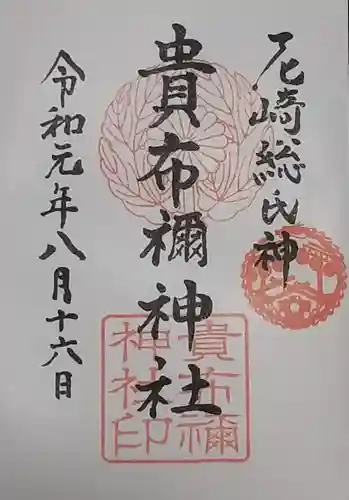 尼崎総氏神
貴布禰神社
令和元年八月十六日
貴布禰
神社印